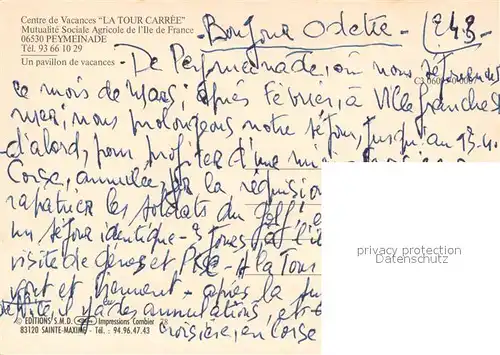 Centre de Vacances "LA TOUR CARRÉE"
Mutualité Sociale Agricole de l'Ile de France
06530 PEYMEINADE
Tél. 93 66 10 29
Un pavillon de vacances
- Bonjour Odette -
- De Peymeinade, où nous séjournons
ce mois de mars; après Février, à Villefranche s/
mer; nous prolongeons notre séjour, jusqu'au
d'abord, pour profiter d'une mini
Corse, annulée, par la réquisition
rapatrier les soldats du Golf
un séjour identique - 3 jours, à l'île
visite de Gènes et Pise - A la Tour
vont et viennent - après la
il y a eu des annulations, et
croisière, en Corse
© ÉDITIONS S.M.D. Impressions Combier
83120 SAINTE-MAXIME - Tél. : 94.96.47.43
privacy protection
Datenschutz